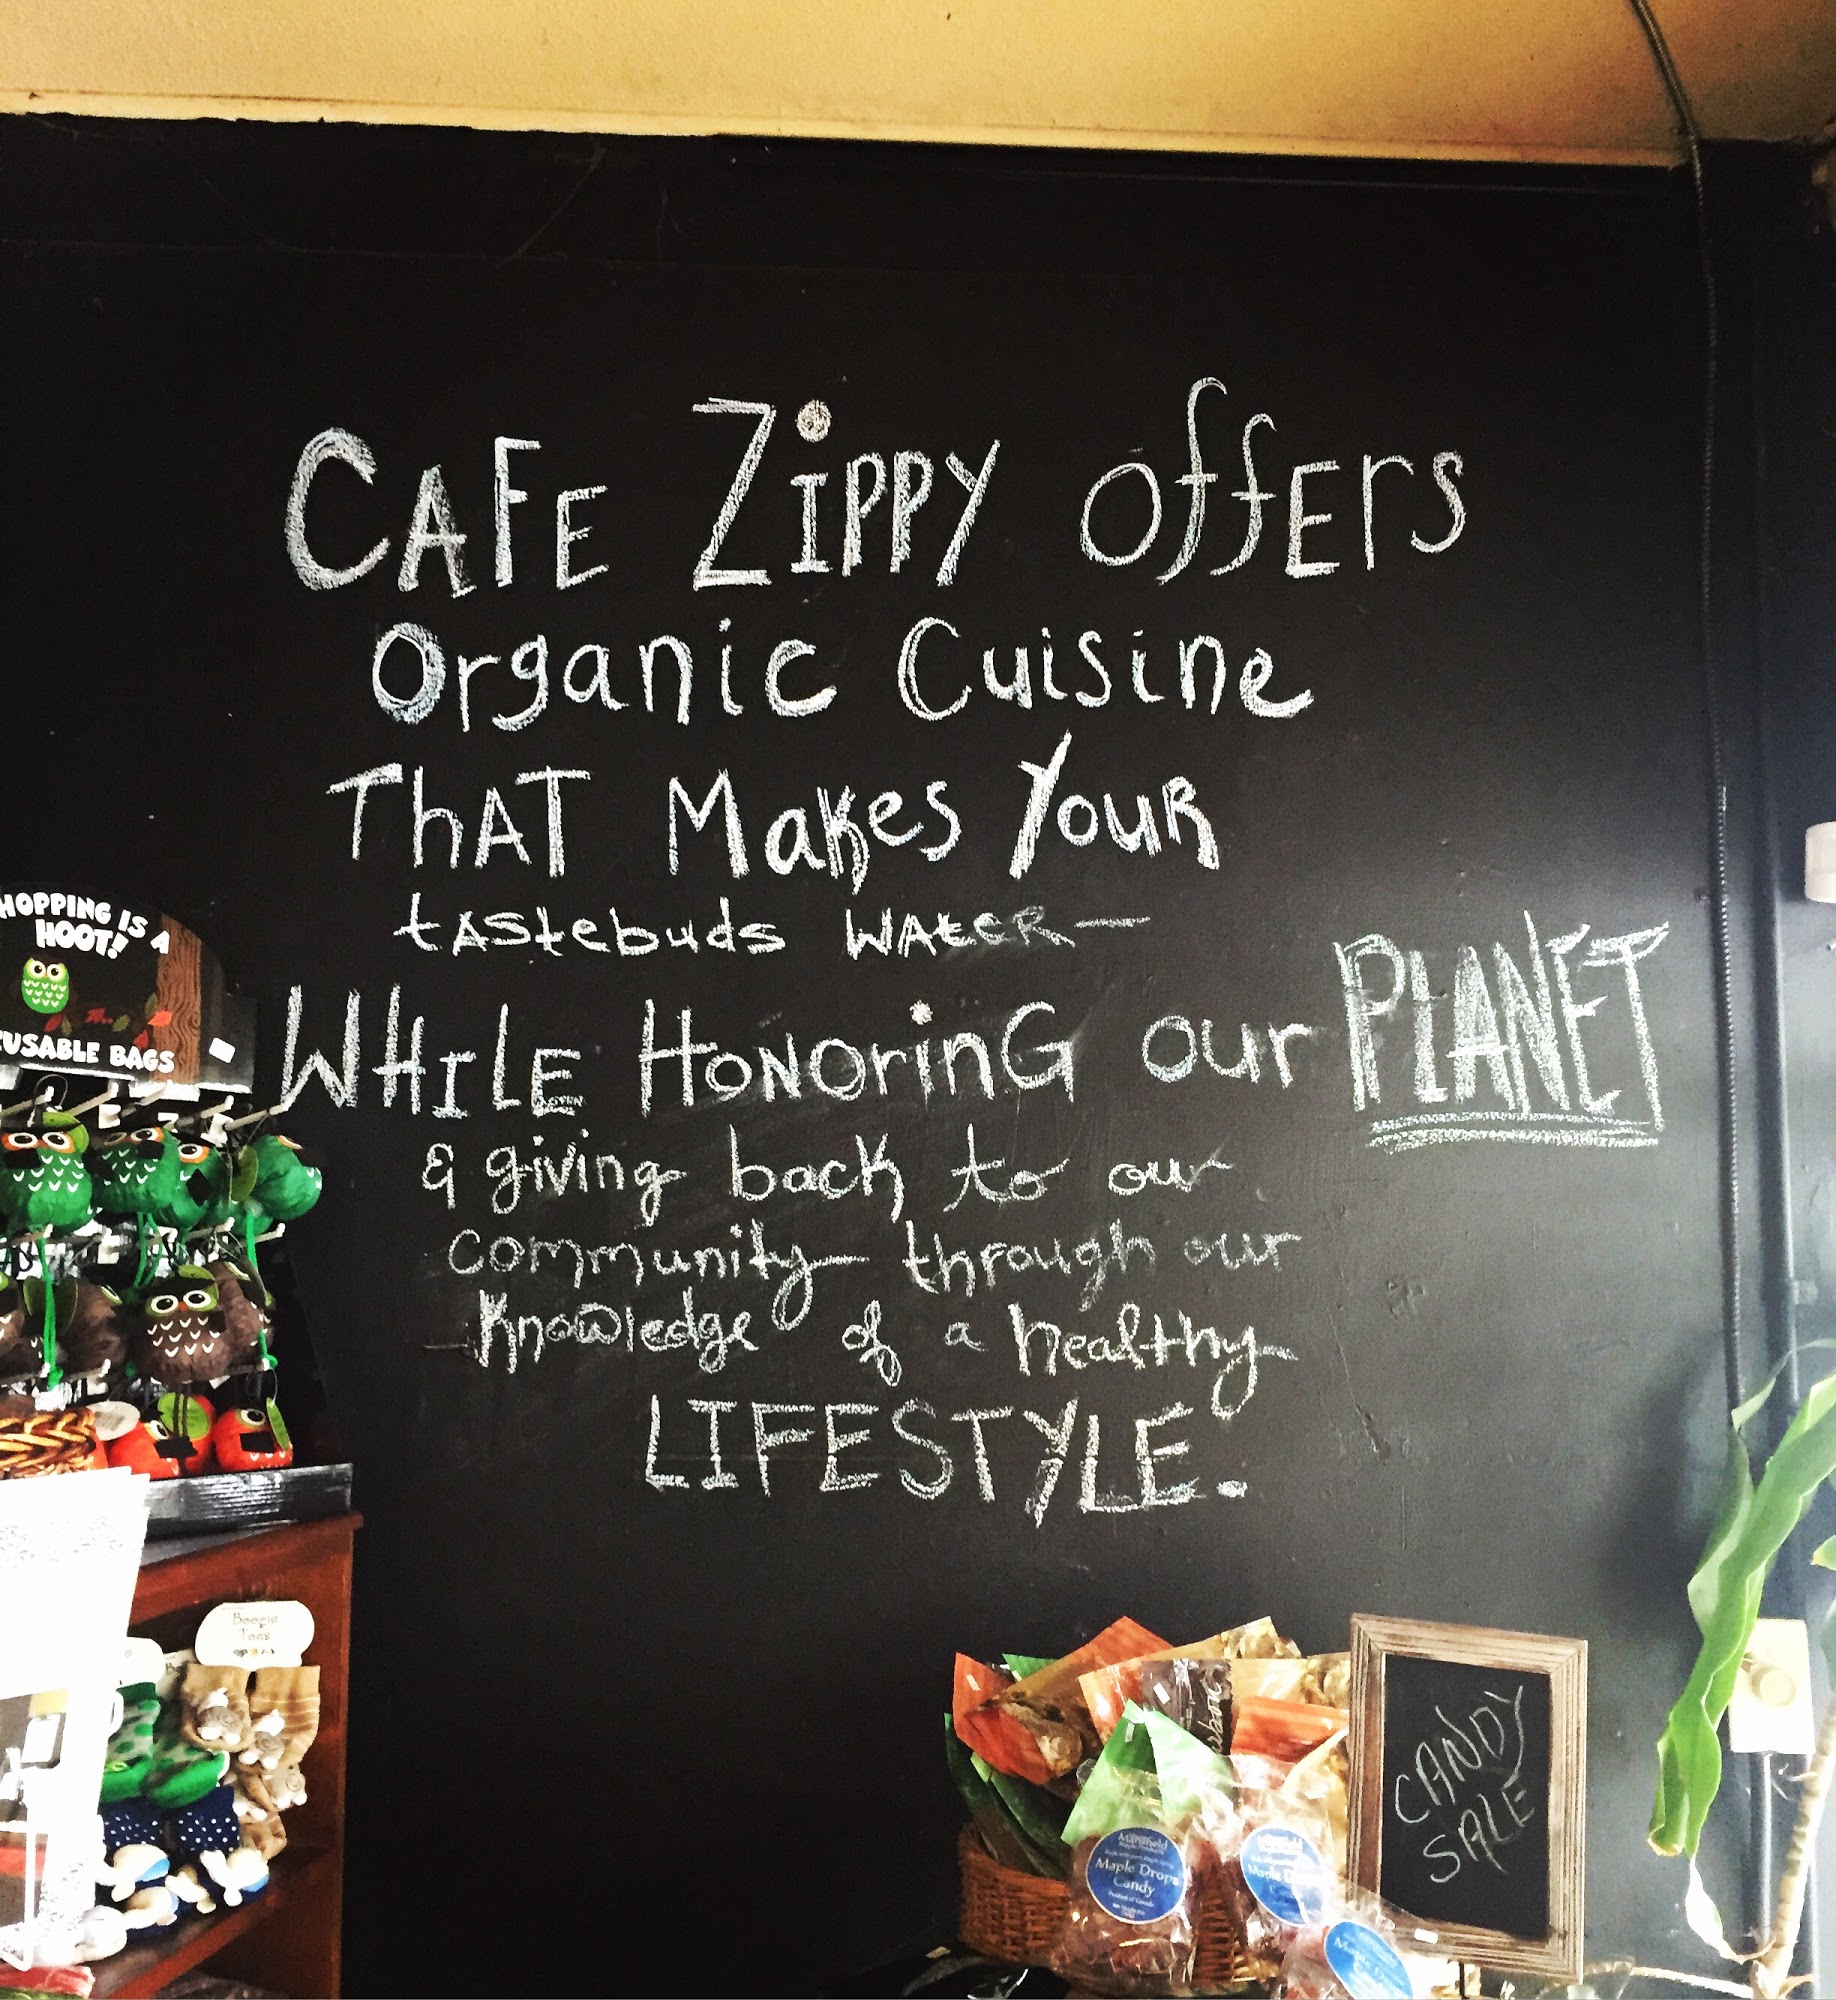 CAFE ZiPPY OffERS
Organic Cuisine
ThAT Makes YouR
tAStebuds WAteR—
WHiLE HONOrinG our PLANET
& giving back to our
community through our
knowledge of a healthy
LIFESTYLE.
HOPPING IS A
HOOT!
USABLE BAGS
Boogie
Toes
Mansfield
Maple Drops
Candy
Product of Canada
Maple D
Maple Dr
CANDY
SALE